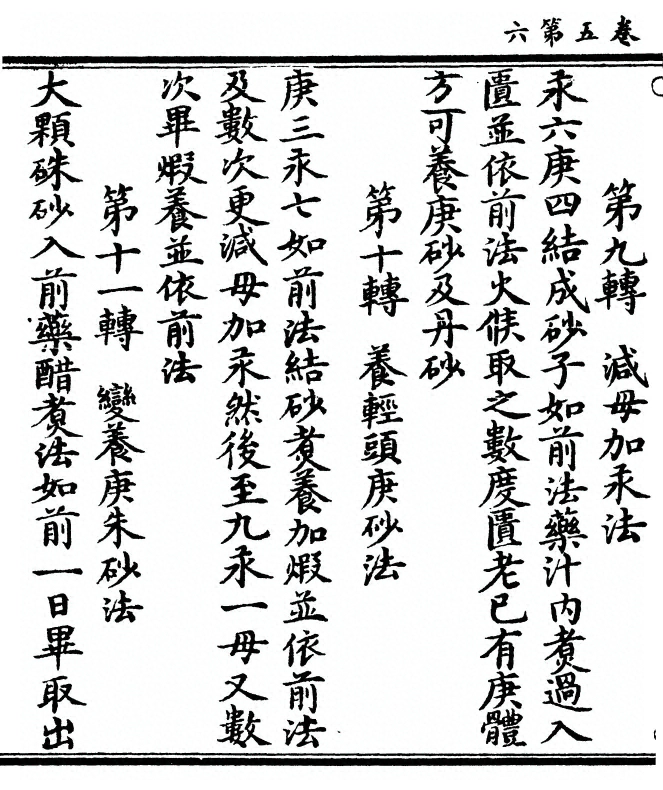 卷五第六
第九轉　減母加汞法
汞六庚四結成砂子如前法藥汁內煮過入
匱並依前法火候取之數度匱老已有庚體
方可養庚砂及丹砂
第十轉　養輕頭庚砂法
庚三汞七如前法結砂煮養加煆並依前法
及數次更減母加汞然後至九汞一母又數
次畢煆養並依前法
第十一轉　變養庚朱砂法
大顆硃砂入前藥醋煮法如前一日畢取出